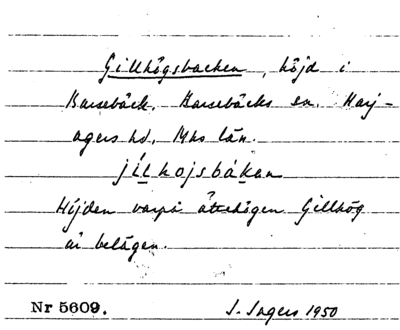 Gillhögsbacken, höjd i
Barsebäck, Barsebäcks sn. Harj-
agers hd, Mhs län.
jílhojsbákan
Höjden varpå ättehögen Gillhög
är belägen.
Nr 5609. J. Ingers 1950